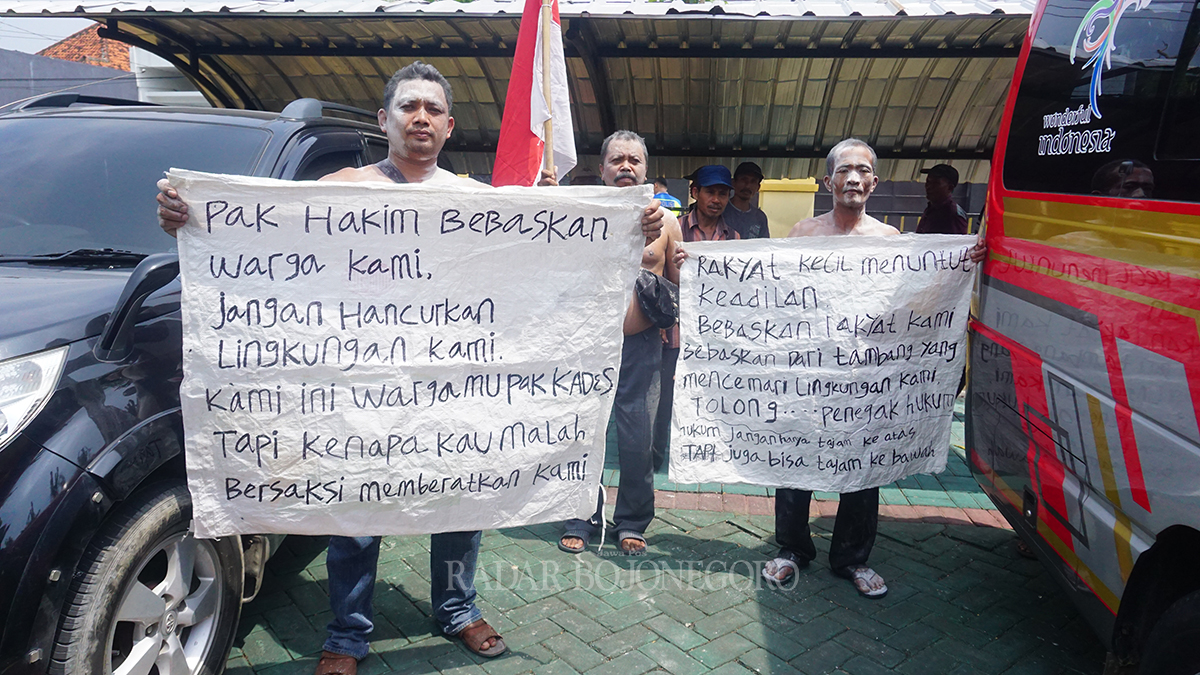 Pak Hakim Bebaskan
Warga kami,
jangan Hancurkan
Lingkungan kami.
Kami ini wargamu pak KADES
Tapi kenapa kau malah
Bersaksi memberatkan kami
RAKYAT KECIL menuntut
Keadilan.
Bebaskan rakyat kami
Bebaskan Dari tambang yang
mencemari Lingkungan kami.
TOLONG..... penegak hukum
hukum jangan hanya tajam ke atas
TAPI juga bisa tajam ke bawah
wonderful
indonesia
Jawa Pos
RADAR BOJONEGORO